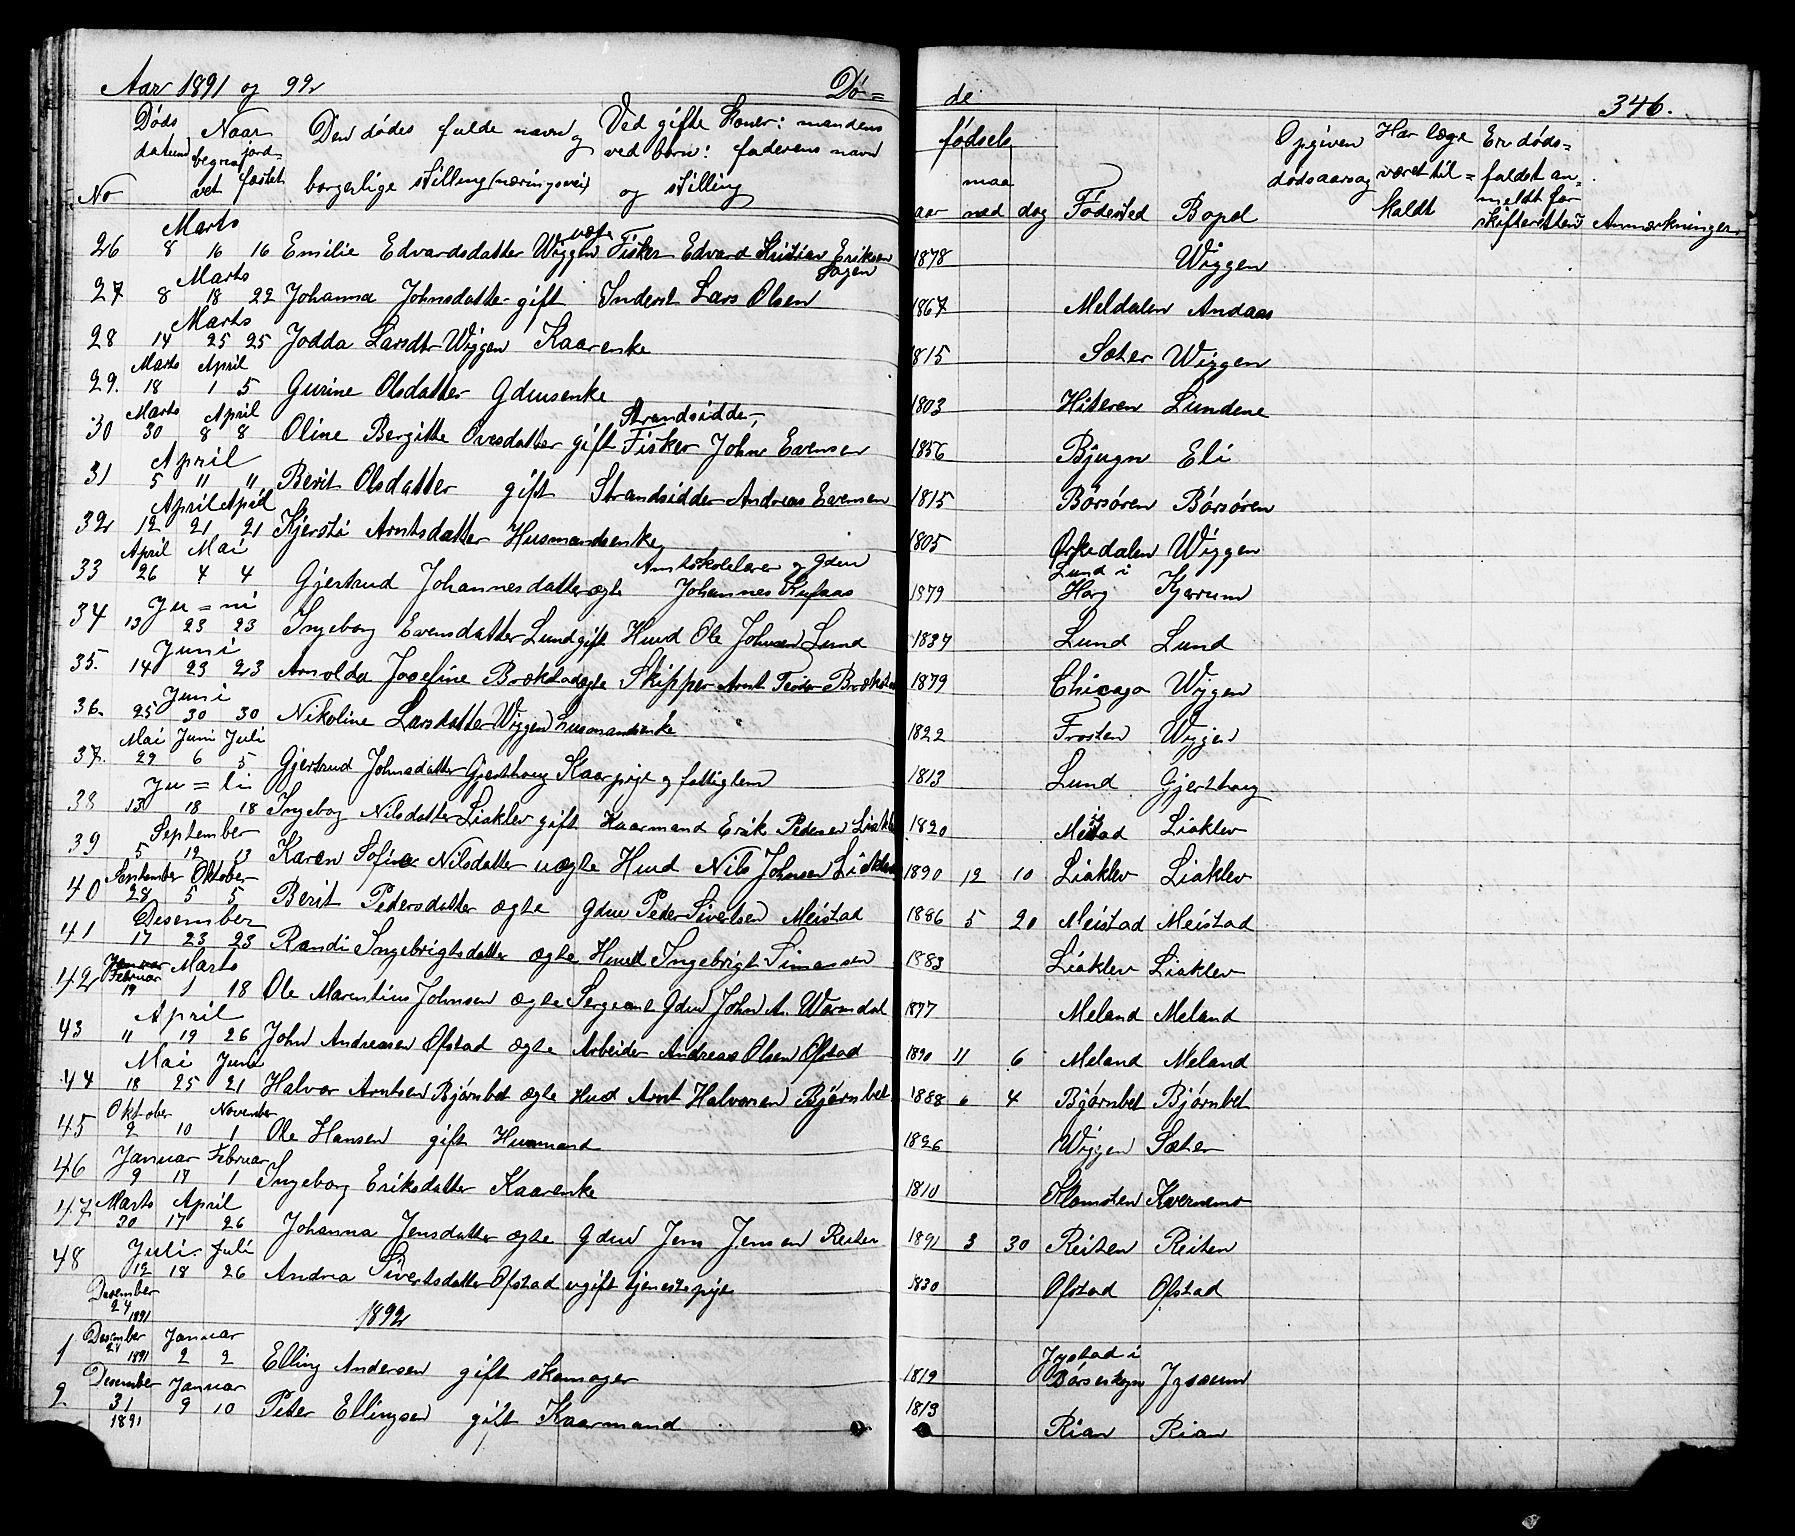 Aar 1891 og 92 Dö= de 346.
No Döds datum Naar begravet jordfæstet Den dödes fulde navn og borgerlige stilling (næringsvei) Ved gifte Koner: mandens ved börn: faderens navn og stilling fødsels aar maaned dag Födested Bopel Opgiven dødsaarsag Har læge været til= kaldt Er døds= faldet an= meldt for skifteretten? Anmærkninger
Marts
26 8 16 16 Emilie Edvardsdatter Wiggen uægte Fisker Edvard Kristian Eriksen 1878 Wiggen
Marts
27 8 18 22 Johanna Johnsdatter gift Inderst Lars Olsen 1867 Meldalen Andaas
Marts
28 14 25 25 Jodda Larsdtr Wiggen Kaarenke 1815 Sæter Wiggen
Marts April
29. 18 1 5 Gurine Olsdatter Gdmsenke 1803 Hiteren Lundene
Marts April Strandsidder,
30 30 8 8 Oline Bergitte Ovesdatter gift Fisker John Evensen 1856 Bjugn Eli
April
31 5 " " Berit Olsdatter gift Strandsidder Andreas Evensen 1815 Börsören Börsören
April April
32 12 21 21 Kjersti Arntsdatter Husmandsenke 1805 Orkedalen Wiggen
April Mai Amtskolelærer og Gdm Lund i
33 26 4 4 Gjertrud Johannesdatter ægte Johannes Rufaas 1879 Horg Kjærum
Ju = ni
34 13 23 23 Ingeborg Evensdatter Lund gift Husd Ole Johnsen Lund 1837 Lund Lund
Juni
35. 14 23 23 Arnolda Josefine Brækstad ægte Skipper Arnt Teodor Brækstad 1879 Chicago Wiggen
Juni
36. 25 30 30 Nikoline Larsdatter Wiggen Husmandsenke 1822 Frosten Wiggen
Mai Juni Juli
37. 29 6 5 Gjertrud Johnsdatter Gjersthaug Kaarpige og fattiglem 1813 Lund Gjersthaug
Ju = li
38 13 18 18 Ingebog Nilsdatter Liaklev gift Kaarmand Erik Pedersen Liaklev 1820 Meistad Liaklev
September
39 5 12 13 Karen Sofine Nilsdatter uægte Husd Nils Johnsen Liaklev 1890 12 10 Liaklev Liaklev
September Oktober
40 28 5 5 Berit Pedersdatter ægte Gdm Peder Sivertsen Meistad 1886 5 20 Meistad Meistad
Desember
41 17 23 23 Randi Ingebrigtsdatter ægte Husd Ingebrigt Simonsen 1883 Liaklev Liaklev
Januar Februar Marts
42 19 1 18 Ole Marentius Johnsen ægte Sergeant Gdm John A. Warmdal 1877 Meland Meland
April
43 " 19 26 John Andreasen Ofstad ægte Arbeider Andreas Olsen Ofstad 1890 11 6 Meland Meland
Mai Juni
44 18 25 21 Halvor Arntsen Bjørnbet ægte Husd Arnt Halvorsen Bjørnbet 1888 6 4 Bjørnbet Bjørnbet
Oktober November
45 2 10 1 Ole Hansen gift Husmand 1826 Wiggen Sæter
Januar Februar
46 9 17 1 Ingeborg Eriksdatter Kaarenke 1810 Klomsten Kvernmo
Marts April
47 30 17 26 Johanna Jensdatter ægte Gdm Jens Jensen Reiten 1891 3 30 Reiten Reiten
Juli Juli
48 12 18 26 Andrea Sivertsdatter Ofstad ugift tjenestepige 1830 Ofstad Ofstad
Desember 24 1891
1892
Desember Januar Jystad i
1 24 1891 2 2 Elling Andersen gift skomager 1819 Börseskogn
Desember Januar
2. 31 1891 9 10 Peter Ellingsen gift Kaarmand 1813 Rian Rian